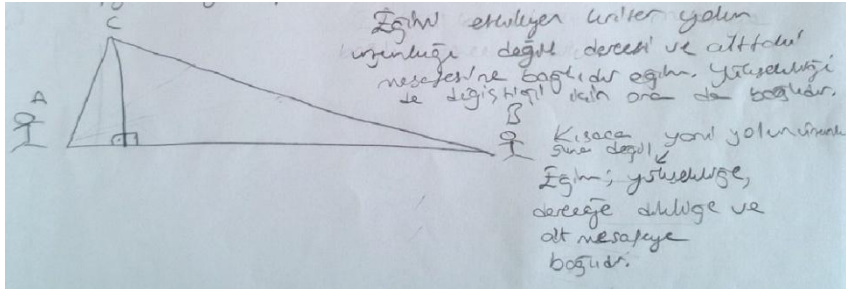 C
A
B
Eğimi etkileyen kriter yolun
uzunluğu değil derecesi ve alttaki
mesafesine bağlıdır eğim. Yüksekliği
de değiştiği için ona da bağlıdır.
Kısaca yani yolun uzunlu
ğuna değil
Eğim; yüksekliğe,
dereceğe dikliğe ve
alt mesafeye
bağlıdır.